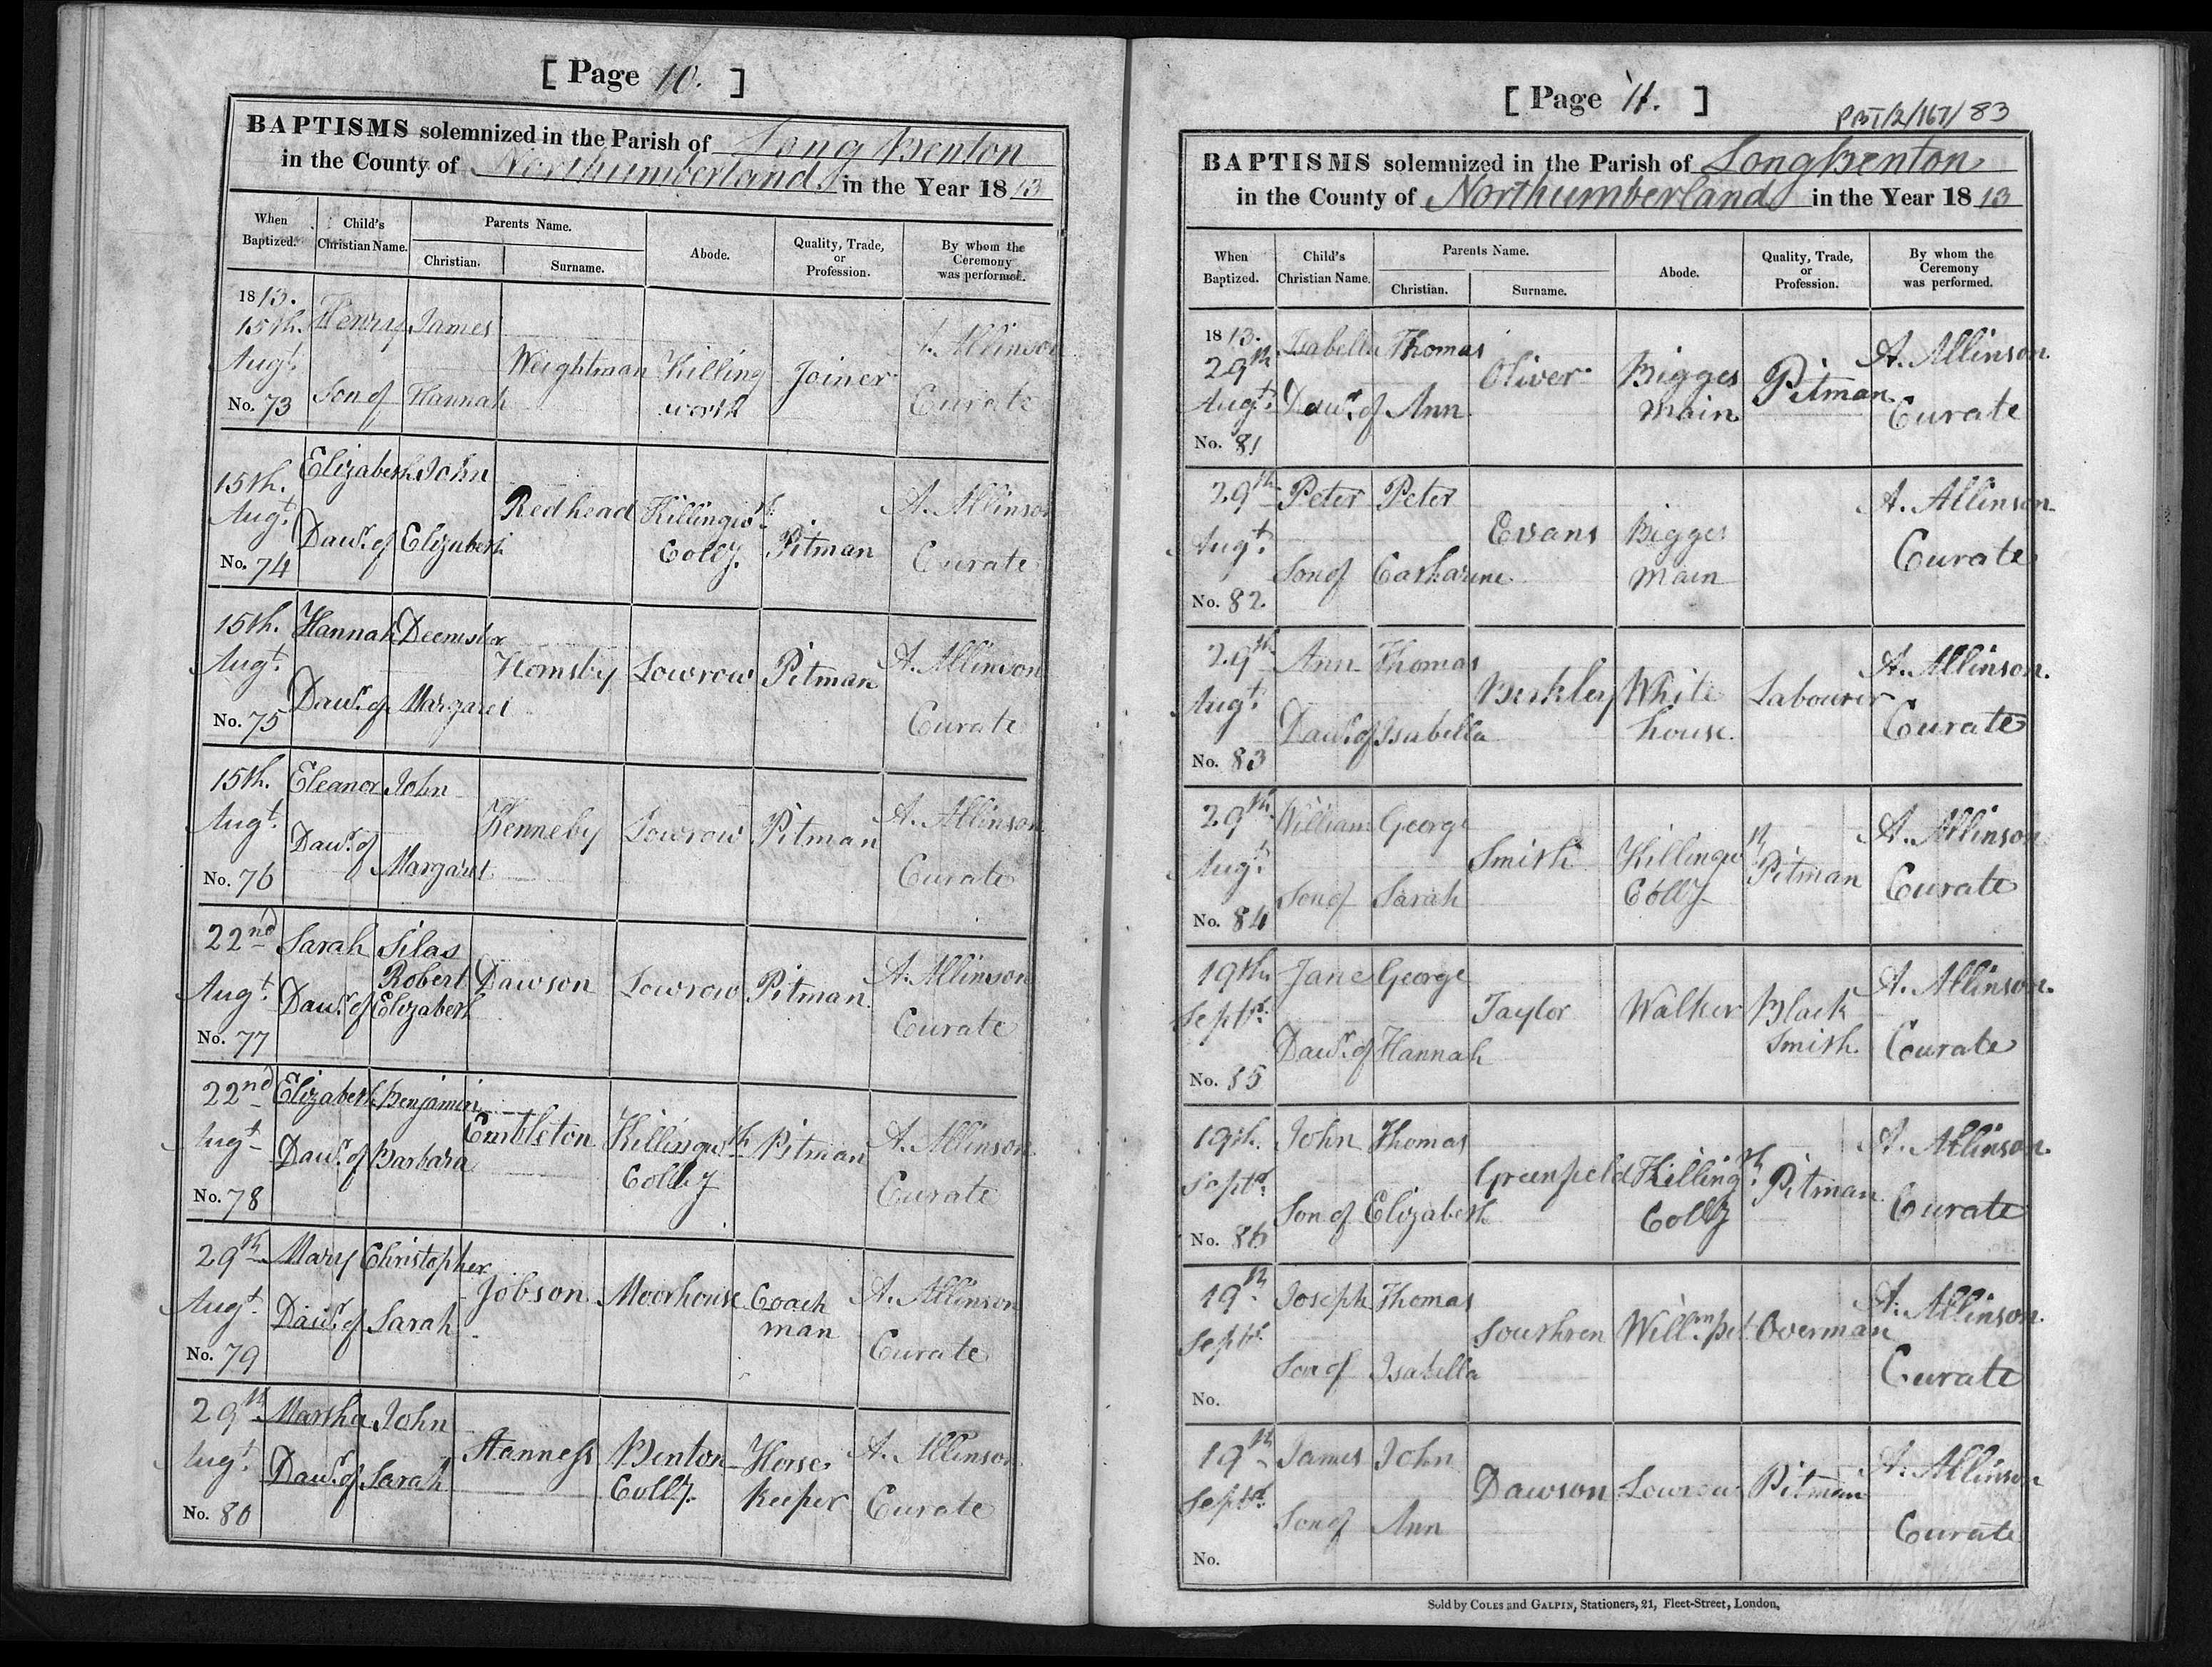 [ Page 10. ]
BAPTISMS solemnized in the Parish of Long Benton
in the County of Northumberland in the Year 18 13
When Baptized.
Child's Christian Name.
Parents Name.
Christian.
Surname.
Abode.
Quality, Trade, or Profession.
By whom the Ceremony was performed.
1813.
15th. Henry James A. Allinson
Augt. Weightman Killing Joiner
No. 73 Son of Hannah worth Curate
Elizabeth John
15th. Redhead Killingwth A. Allinson
Augt. Daur. of Elizabeth Colly. Pitman Curate
No. 74
15th. Hannah Deemster
Augt. Hornsby Lowrow Pitman A. Allinson
Daur. of Margaret Curate
No. 75
15th. Eleanor John
Augt. Kenneby Lowrow Pitman A. Allinson
Daur. of Margaret Curate
No. 76
22nd Sarah Silas
Robert Dawson Lowrow Pitman A. Allinson
Augt. Daur. of Elizabeth Curate
No. 77
22nd Elizabeth Benjamin
Augt Embleton Killingwth Pitman A. Allinson
Daur. of Barbara Colly Curate
No. 78
29th Mary Christopher
Jobson Moorhouse Coach A. Allinson
Augt. Daur. of Sarah man Curate
No. 79
29th. Martha John
Augt. Stanness Benton Horse A. Allinson
Daur. of Sarah Colly. Keeper Curate
No. 80
[ Page 11. ]
PBT/2/167/83
BAPTISMS solemnized in the Parish of Long Benton
in the County of Northumberland in the Year 18 13
When Baptized.
Child's Christian Name.
Parents Name.
Christian.
Surname.
Abode.
Quality, Trade, or Profession.
By whom the Ceremony was performed.
1813. Isabella Thomas A. Allinson.
29th. Oliver Bigges Pitman
Augt. Daur. of Ann Main Curate
No. 81
29th Peter Peter A. Allinson.
Augt. Evans Bigges
Son of Catharine Main Curate
No. 82.
29th Ann Thomas A. Allinson.
Augt. Berkley White Labourer
Daur. of Isabella house. Curate
No. 83
29th William George A. Allinson
Augt. Smith Killingwth Pitman
Son of Sarah Colly Curate
No. 84
19th. Jane George A. Allinson.
Septr. Taylor Walker Black
Daur. of Hannah Smith. Curate
No. 85
19th. John Thomas A. Allinson.
Septr. Greenfield Killingth. Pitman
Son of Elizabeth Colly Curate
No. 86
19th Joseph Thomas A. Allinson.
Septr. Southren Willm. pit Overman
Son of Isabella Curate
No.
19th James John A. Allinson
Septr. Dawson Lowrow Pitman
Son of Ann Curate
No.
Sold by COLES and GALPIN, Stationers, 21, Fleet-Street, London.